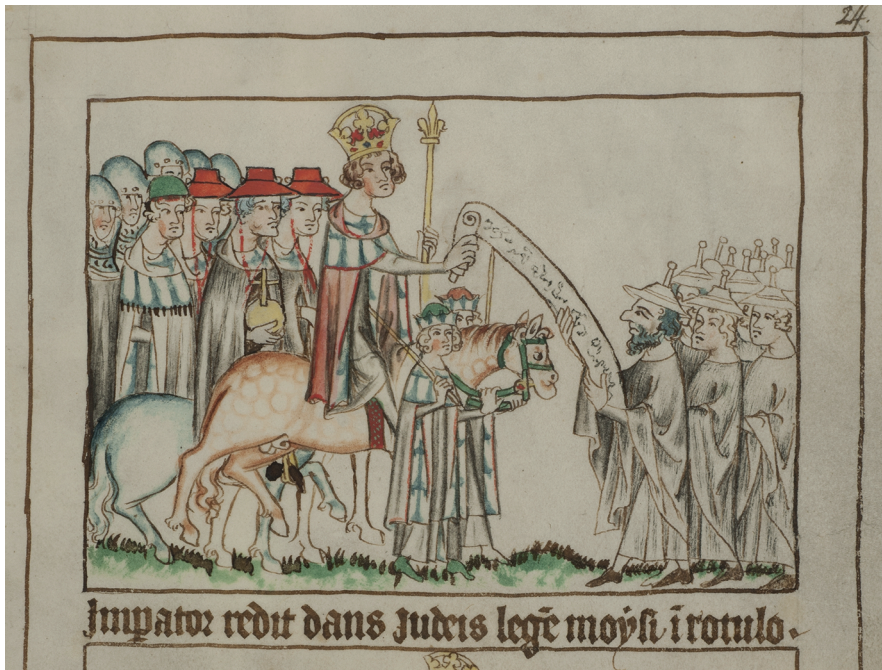 24.
Imp̲ator redit dans Judeis legē moẏsi ī rotulo.